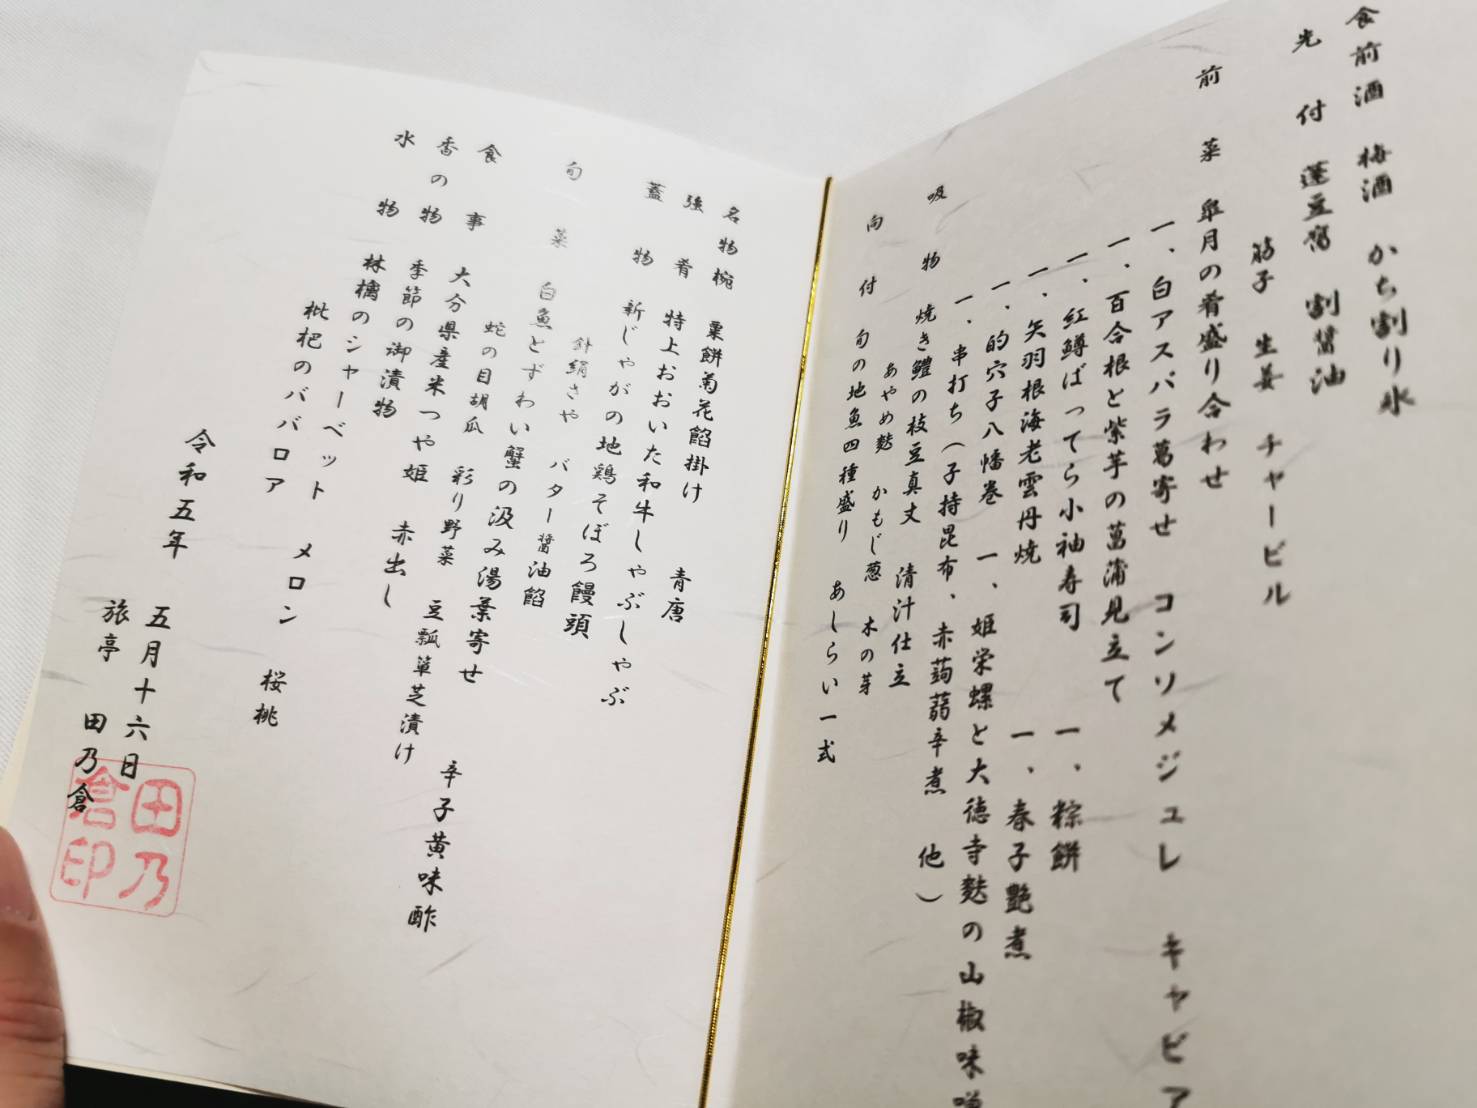 食前酒 梅酒 かち割り氷
先付 蓬豆腐 割醤油
筋子 生姜 チャービル
前菜 皐月の肴盛り合わせ
一、白アスパラ葛寄せ コンソメジュレ キャビア
一、百合根と紫芋の菖蒲見立て
一、紅鱒ばってら小袖寿司 一、粽餅
一、矢羽根海老雲丹焼 一、春子艶煮
一、的穴子八幡巻 一、姫栄螺と大徳寺麩の山椒味噌
一、串打ち(子持昆布、赤蒟蒻辛煮 他)
吸物 焼き鱧の枝豆真丈 清汁仕立
あやめ麩 かもじ葱 木の芽
向付 旬の地魚四種盛り あしらい一式
名物椀 粟餅菊花餡掛け 青唐
強肴 特上おおいた和牛しゃぶしゃぶ
蓋物 新じゃがの地鶏そぼろ饅頭
針絹さや バター醤油餡
旬菜 白魚とずわい蟹の汲み湯葉寄せ
蛇の目胡瓜 彩り野菜 辛子黄味酢
食事 大分県産米つや姫 赤出し 豆瓢箪芝漬け
香の物 季節の御漬物
水物 林檎のシャーベット メロン 桜桃
枇杷のババロア
令和五年 五月十六日
旅亭 田乃倉
田乃
倉印